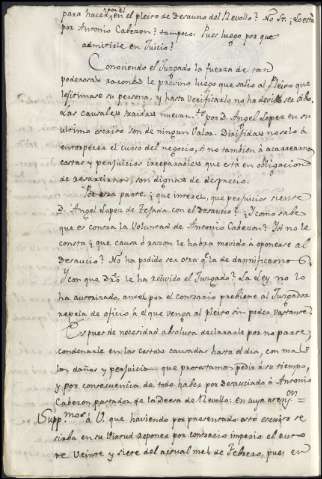 para hacer, en el pleito se desauno del Revollo? No Sr. ¿Lo esta
por Antonio Caberon? tampoco. Pues luego por que
admitirle en Juicio?
Conociendo el Juzgado la fuerza de tan
poderosas razones le previno luego que salio al Pleito que
lexitimase su persona, y hasta verificarlo no ha devido ser
las causales traidas nueva. por D. Angel Lopez en su
ultimo escrito son de ningun valor. Dirijidas no solo à
entorpecer el curso del negocio, si no tambien à acarrear
costas y perjuicios irreparables que está en obligacion
de resarcirnos, son dignas de desprecio.
Por otra parte; ¿que interes, que perjuicios siente
D. Angel Lopez de Tejada con el Desaucio? ¿Y como sabe
que es contra la Voluntad de Antonio Caberon? Yo no le
consta; ¿que causa ó razon le habrá movido à oponerse al
Desaucio? No ha podido ser otra q.e la de damnificarnos
¿Y con que Dro le ha recivido el Juzgado? La Ley no lo
ha autorizado, antes por el contrario previene al Juzgador
repela de oficio à el que venga al pleito sin poder vastante.
Es pues de necesidad absoluta declararle por no parte
condenarle en las costas causadas hasta el dia, con mas
los daños y perjuicios que protestamos pedir à su tiempo,
y por consecuencia de todo haber por desauciado à Antonio
Caberon pastor de la Desa de Revollo: en cuya atenz.on
Supp.mos à V. que haviendo por presentado este escrito se
sirva en su Virtud reponer por contrario imperio el auto
de Veinte y siete del actual mes de Febrero, pues en